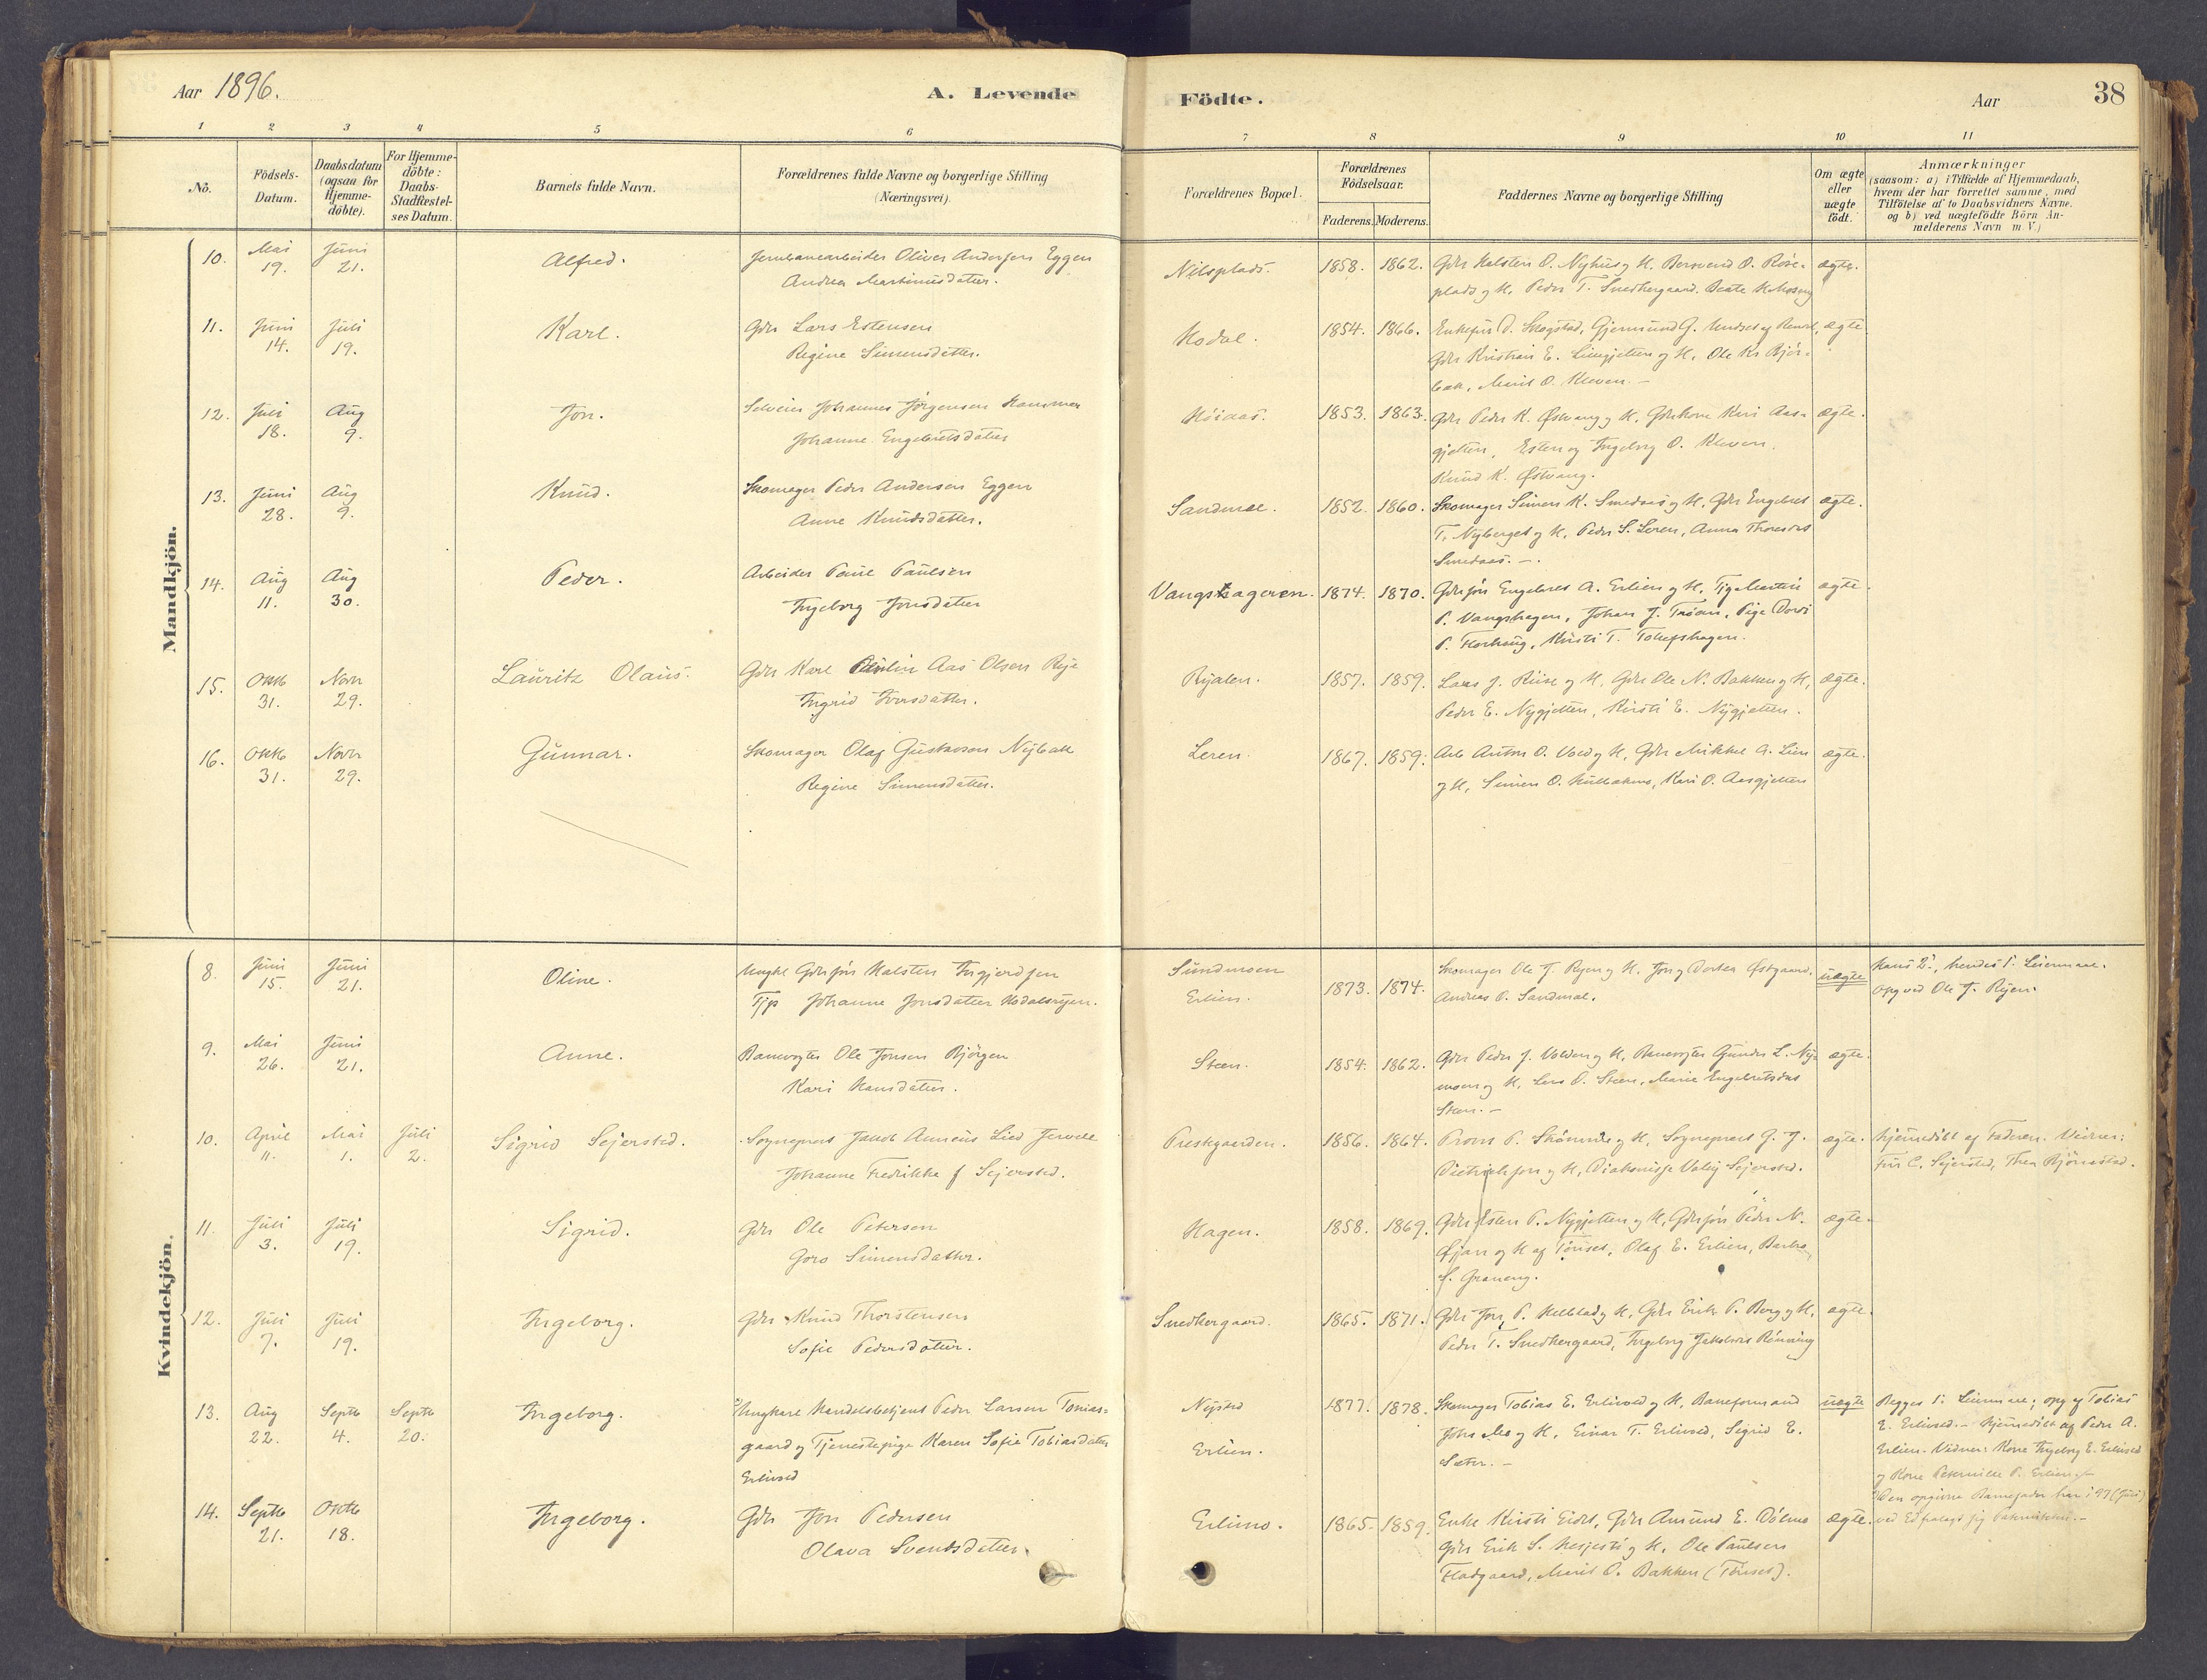 Aar 1896.
A. Levende
Födte.
Aar
38
1 2 3 4 5 6 7 8 9 10 11
Nō.
Födsels-
Datum.
Daabsdatum
(ogsaa for
Hjemme-
döbte).
For Hjemme-
döbte:
Daabs-
Stadfæstel-
ses Datum.
Barnets fulde Navn.
Forældrenes fulde Navne og borgerlige Stilling
(Næringsvei).
Forældrenes Bopæl.
Forældrenes
Födselsaar.
Faderens. Moderens.
Faddernes Navne og borgerlige Stilling
Om ægte
eller
uægte
födt.
Anmærkninger
(saasom: a) i Tilfælde af Hjemmedaab,
hvem der har forrettet samme, med
Tilföielse af to Daabsvidners Navne.
og b) ved uægtefödte Börn An-
melderens Navn m. V.)
Mandkjön.
10. Mai 19. Juni 21. Alfred. Jernbanearbeider Oliver Andersen Eggen
Andrea Martinusdatter.
Nilsplads. 1858. 1862. Gdr Halsten O. Nyhus og H. Bersvend O. Röse-
plads og H. Peder T. Snedkergaard. Beate H. Moseng
ægte.
11. Juni 14. Juli 19. Karl. Gdr Lars Estensen
Regine Simensdatter.
Hodal. 1854. 1866. Enkefru D. Skogstad, Gjermund G. Undset af Rendal,
Gdr Kristian E. Liengjetten og H. Ole Kr Björ-
bæk, Marit O. Kleven. —
ægte.
12. Juli 18. Aug 9. Jon. Selveier Johannes Jörgensen Hammer
Johanne Engebretsdatter
Höiaas. 1853. 1863. Gdr Peder K. Østvang og H. Gdrkone Kari Aas-
gjetten, Esten og Ingeborg O. Kleven.
Knud K. Østvang.
ægte.
13. Juni 28. Aug 9. Knud. Skomager Peder Andersen Eggen
Anne Knudsdatter.
Sandmæl. 1852. 1860. Skomager Simen K. Smedaas og H, Gdr Engebret
T. Nyberget og H. Peder S. Leren, Anna Thoresdts
Smedaas. —.
ægte.
14. Aug 11. Aug 30. Peder. Arbeider Paul Paulsen
Ingeborg Jonsdatter
Vangshageren. 1874. 1870. Gdrsön Engebret A. Erlien og H, Tjg Martin
P. Vangshagen, Johan J. Tröan, Pige Dordi
P. , Kirsti T. Tollefshagen.
ægte.
15. Oktb 31. Novr 29. Lauritz Olaus. Gdr Karl Paulin Aas Olsen Rye
Ingrid Iversdatter.
Ryalen. 1857. 1859. Lars J. Ruse og H, Gdr Ole N. Bakken og H,
Peder E. Nygjetten, Kirsti E. Nygjetten.
ægte.
16. Oktb 31. Novr 29. Gunnar. Skomager Olaf Gustavson Nybak
Regine Simensdatter.
Leren. 1867. 1859. Arb Anton O. Vold og H, Gdr Mikkel A. Lien
og H, Simen O. Hulbakmo, Kari O. Aasgjetten
ægte.
Kvindekjön.
8. Juni 15. Juni 21. Oline. Ungkl Gdrsön Halsten Ingjerdsen
Tjp Johanne Jonsdatter Hodalsryen.
Sundmoen
Erlien. 1873. 1874. Skomager Ole J. Ryen og H. Jon og Dortea Østgaard.
Andreas P. Sandmæl.
uægte
Hans 2., hendes 1. Leiermaal.
Opg ved Ole J. Ryen.
9. Mai 26. Juni 21. Anne. Banevogter Ole Jonsen Bjørgen
Kari Hansdatter.
Steen. 1854. 1862. Gdr Peder J. Volden og H. Banevogter Gunder L. Ny-
moen og H, Lars O. Steen, Marie Engebretsdts
Steen. —
ægte.
10. April 11. Mai 1. Juli 2. Sigrid Sejersted. Sogneprest Jakob Anneus Lied Jervell
Johanne Fredrikke f Sejersted.
Prestgaarden. 1856. 1864. Provst P. og H, Sogneprest G. J.
Dietrichson og H, Diakonisse Valby Sejersted.
ægte.
hjemmedöbt af Faderen. Vidner:
Fru C. Sejersted, Thea Bjørnstad.
11. Juli 3. Juli 19. Sigrid. Gdr Ole Petersen
Goro Simensdatter.
Hagen. 1858. 1869. Gdr Esten P. Nygjetten og H, Gdrsön Peder N.
Øjan og H af Tönset, Olaf E. Erlien, Barbra
S. Graneng.
ægte.
12. Juli 7. Juli 19. Ingeborg. Gdr Knud Thorstensen
Sofie Pedersdatter.
Snedkergaard. 1865. 1871. Gdr Jon P. Melblad og H, Gdr Erik P. Berg og H,
Peder T. Snedkergaard, Ingeborg Jakobsdt Rönning
ægte.
13. Aug 22. Septb 4. Septb 20. Ingeborg. Ungkarl Handelsbetjent Peder Larsen Tomas-
gaard og Tjenestepige Karen Sofie Tobiasdatter
Erlivold
Nysted
Erlien. 1877. 1878. Skomager Tobias E. Erlivold og H, Baneformand
Johs Mo og H. Einar T. Erlivold, Sigrid E.
Sæter. —
uægte
Begges 1. Leiermaal; opg af Tobias
E. Erlivold. — Hjemmedöbt af Peder A.
Erlien. Vidner: Kone Ingeborg E. Erlivold
og Kone Peternille P. Erlien. —
Den opgivne Barnefader har i 97 (Juni)
ved Ed fralagt sig Paterniteten. —
14. Septb 21. Oktb 18. Ingeborg. Gdr Jon Pedersen
Olava Svendsdatter.
Erlimo. 1865. 1859. Enke Kirsti Eidet, Gdr Amund E. Dölmo
Gdr Erik S. og H. Ole Paulsen
Flatgaard, Marit O. Bakken (Tönset).
ægte.